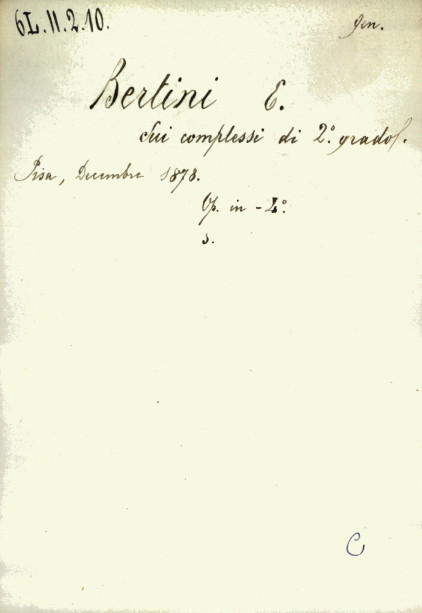 6L.11.2.10. gen.
Bertini E.
Sui complessi di 2.° grado.
Pisa, Decembre 1878.
Op. in-4.°
s.
C